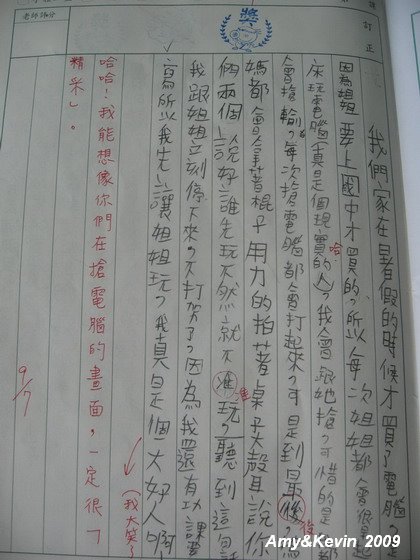 老師評分
訂正
獎
我們家在暑假的時候才買了電腦,
因為姐姐要上國中才買的,所以每次姐姐都會很早起
床玩電腦(真是個現實的人)我會跟她搶,可惜的是都
哈
會搶輸,每次搶電腦都會打起來,可是到最後,
後
媽都會拿著棍子用力的拍著桌子大聲說你
們兩個說好誰先玩不然就不准玩,聽到這句話
准
我跟姐姐立刻停下來,不打架了,因為我還有功課要
寫所以我先讓姐姐玩,我真是個大好人啊
(我大笑了
哈哈!我能想像你們在搶電腦的畫面,一定很「
精采」。
9/7
Amy&Kevin 2009